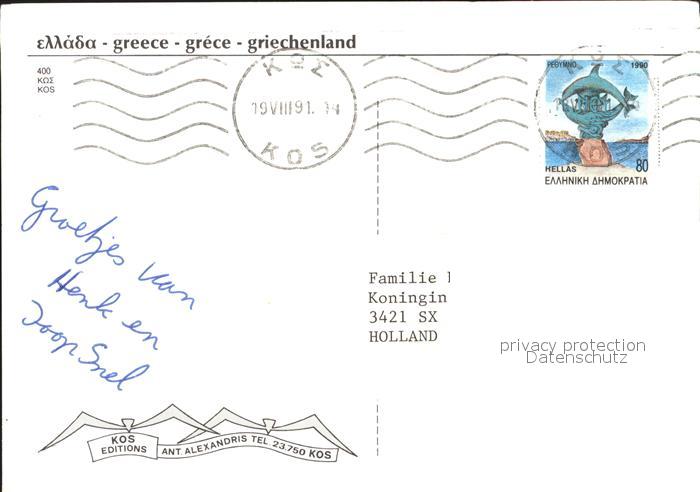 ελλάδα - greece - gréce - griechenland
400
ΚΩΣ
KOS
ΚΩΣ
19VIII91. 14
KOS
ΡΕΘΥΜΝΟ 1990
HELLAS 80
ΕΛΛΗΝΙΚΗ ΔΗΜΟΚΡΑΤΙΑ
Groetjes van
Henk en
Joop Snel
Familie
Koningin
3421 SX
HOLLAND
privacy protection
Datenschutz
KOS
EDITIONS
ANT. ALEXANDRIS TEL. 23.750 KOS